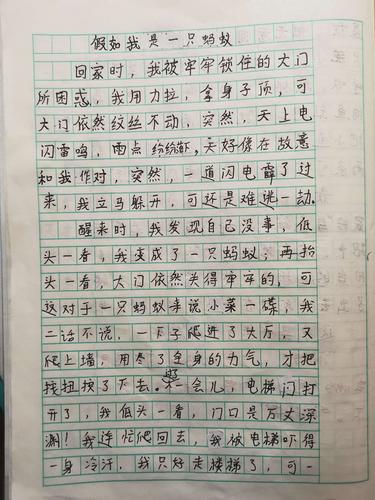 假如我是一只蚂蚁
回家时，我被牢牢锁住的大门
所困惑，我用力拉，拿身子顶，可
大门依然纹丝不动，突然，天上电
闪雷鸣，雨点纷纷落下，天好像在故意
和我作对，突然，一道闪电霹了过
来，我立马躲开，可还是难逃一劫。
醒来时，我发现自己没事，低
头一看，我变成了一只蚂蚁；再抬
头一看，大门依然关得牢牢的，可
这对于一只蚂蚁来说小菜一碟，我
二话不说，一下子爬进了大厅，又
爬上墙，用尽了全身的力气，才把
按扭按了下去。不一会儿，电梯门打
开了，我低头一看，门口是万丈深
渊！我连忙爬回去，我被电梯吓得
一身冷汗，我只好走楼梯了，可一